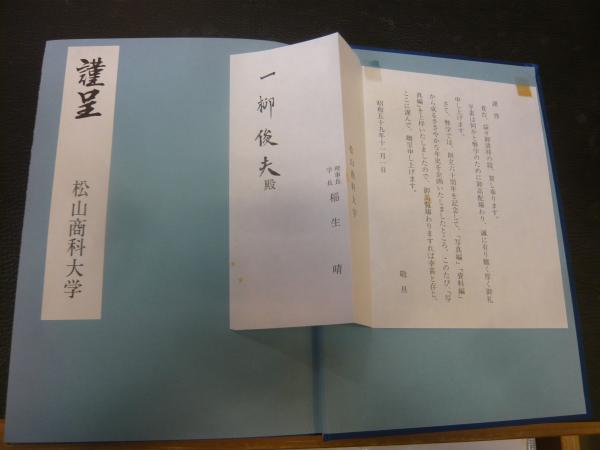 謹啓
貴台、益々御清祥の段、賀し奉ります。
平素は何かと弊学のために御高配賜わり、誠に有り難く厚く御礼
申し上げます。
さて、弊学では、創立六十周年を記念して、「写真編」「資料編」
から成るささやかな年史を企画いたしましたところ、このたび、「写
真編」を上梓いたしましたので、御高覧賜わりますれば幸甚と存じ、
ここに謹んで、贈呈申し上げます。
敬具
昭和五十九年十一月一日
松山商科大学
理事長
学長
稲生晴
一柳俊夫殿
謹呈
松山商科大学